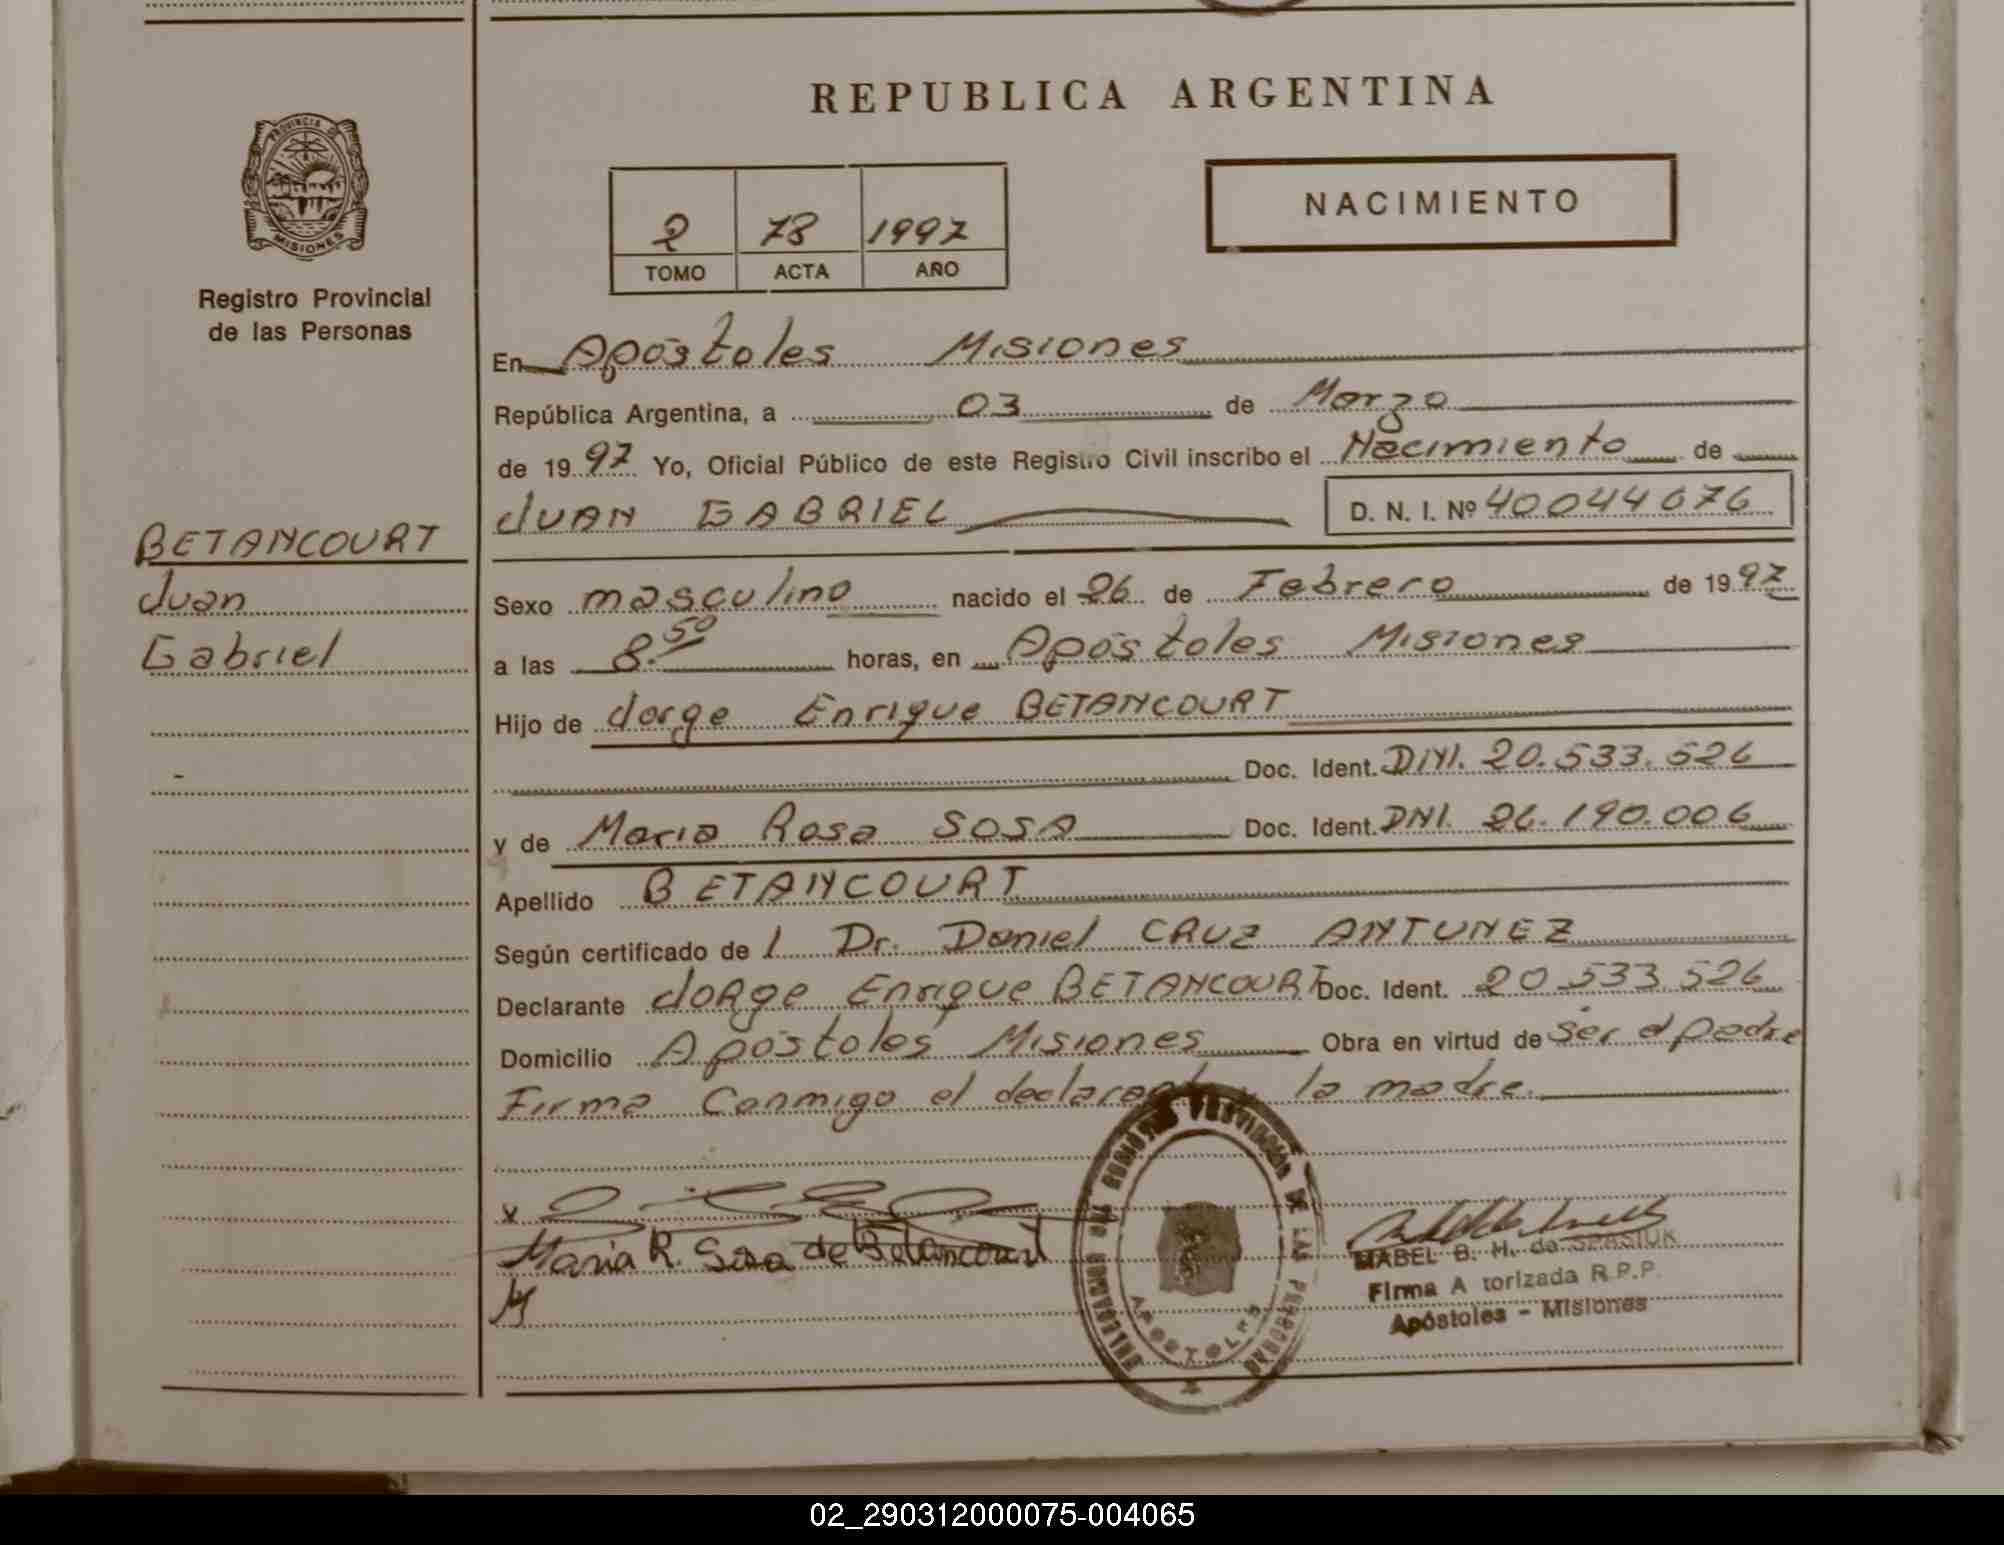 REPUBLICA ARGENTINA
PROVINCIA DE
MISIONES
Registro Provincial
de las Personas
2 78 1997
TOMO ACTA AÑO
NACIMIENTO
En Apóstoles Misiones
República Argentina, a 03 de Marzo
de 1997 Yo, Oficial Público de este Registro Civil inscribo el Nacimiento de
JUAN GABRIEL D. N. I. Nº 40044676
BETANCOURT
Juan
Gabriel
Sexo masculino nacido el 26 de Febrero de 1997
a las 8.50 horas, en Apóstoles Misiones
Hijo de Jorge Enrique BETANCOURT
Doc. Ident. DNI. 20.533.526
y de Maria Rosa SOSA Doc. Ident. DNI. 26.190.006
Apellido BETANCOURT
Según certificado de l Dr. Daniel CRUZ ANTUNEZ
Declarante Jorge Enrique BETANCOURT Doc. Ident. 20.533.526
Domicilio Apóstoles Misiones Obra en virtud de ser el padre
Firma Conmigo el declarante y la madre.
x
Maria R. Sosa de Betancourt
MABEL B. H. de SPASIUK
Firma A torizada R.P.P.
Apóstoles - Misiones
DE LAS PERSONAS
APOSTOLES
02_290312000075-004065